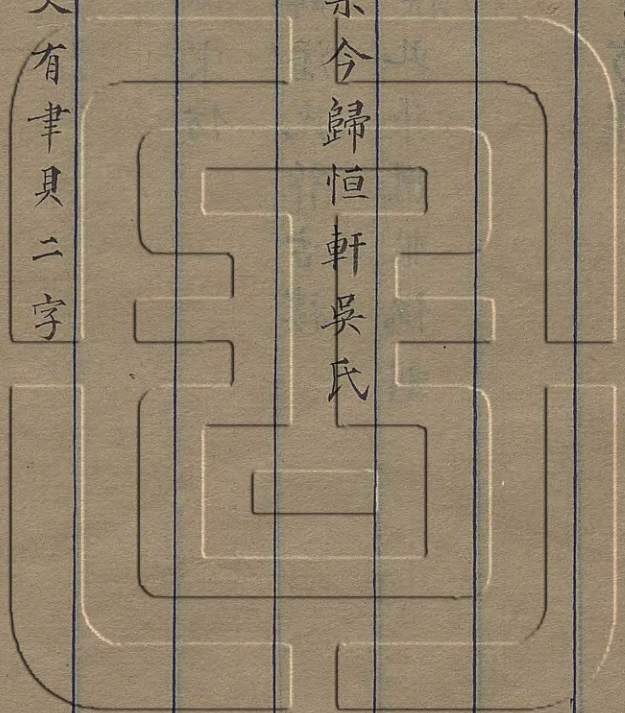 今歸恒軒吳氏
有聿貝二字